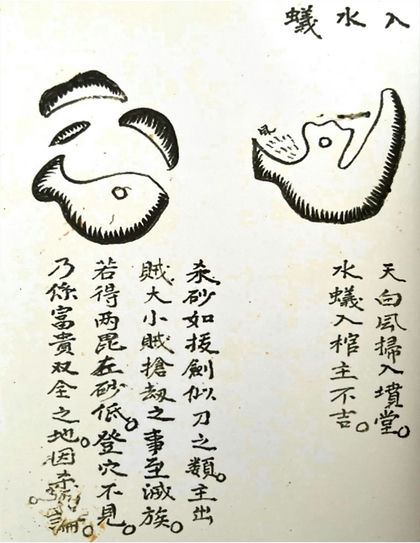 入水蟻
天白风掃入墳堂。
水蟻入棺主不吉。
杀砂如拔劍似刀之類。主出
賊大小賊搶劫之事至滅族。
若得两毘在砂低。登穴不見。
乃係富貴双全之地。論。